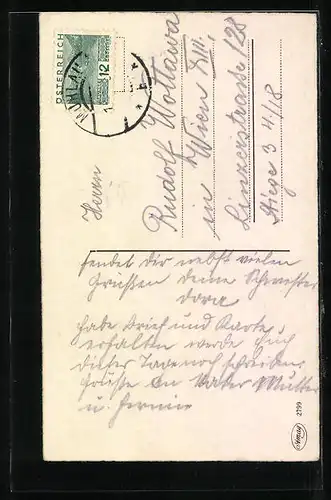 ÖSTERREICH
12
Herrn
Rudolf Wottawa
in Wien XIII.
Linzerstrasse 128
Stiege 3 4/18
sendet dir nebst vielen
Grüßen deine Schwester
Dora
habe Brief und Karte
erhalten werde Euch
dieser Tage noch schreiben
Grüße an Vater Mutter
u.
2799